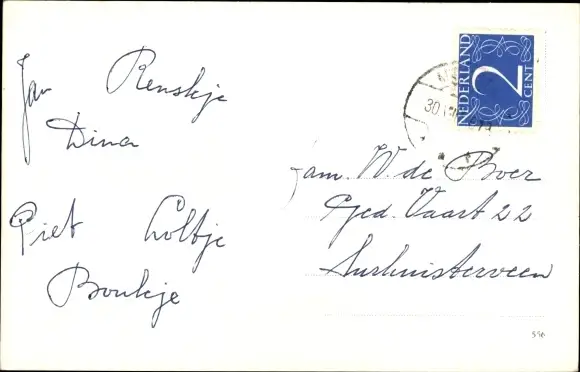 Jan Renskje
Dina
Piet Loltje
Boukje
NEDERLAND
2
CENT
30
Fam. W. de Boer
Ged. Vaart 22
Surhuisterveen
596